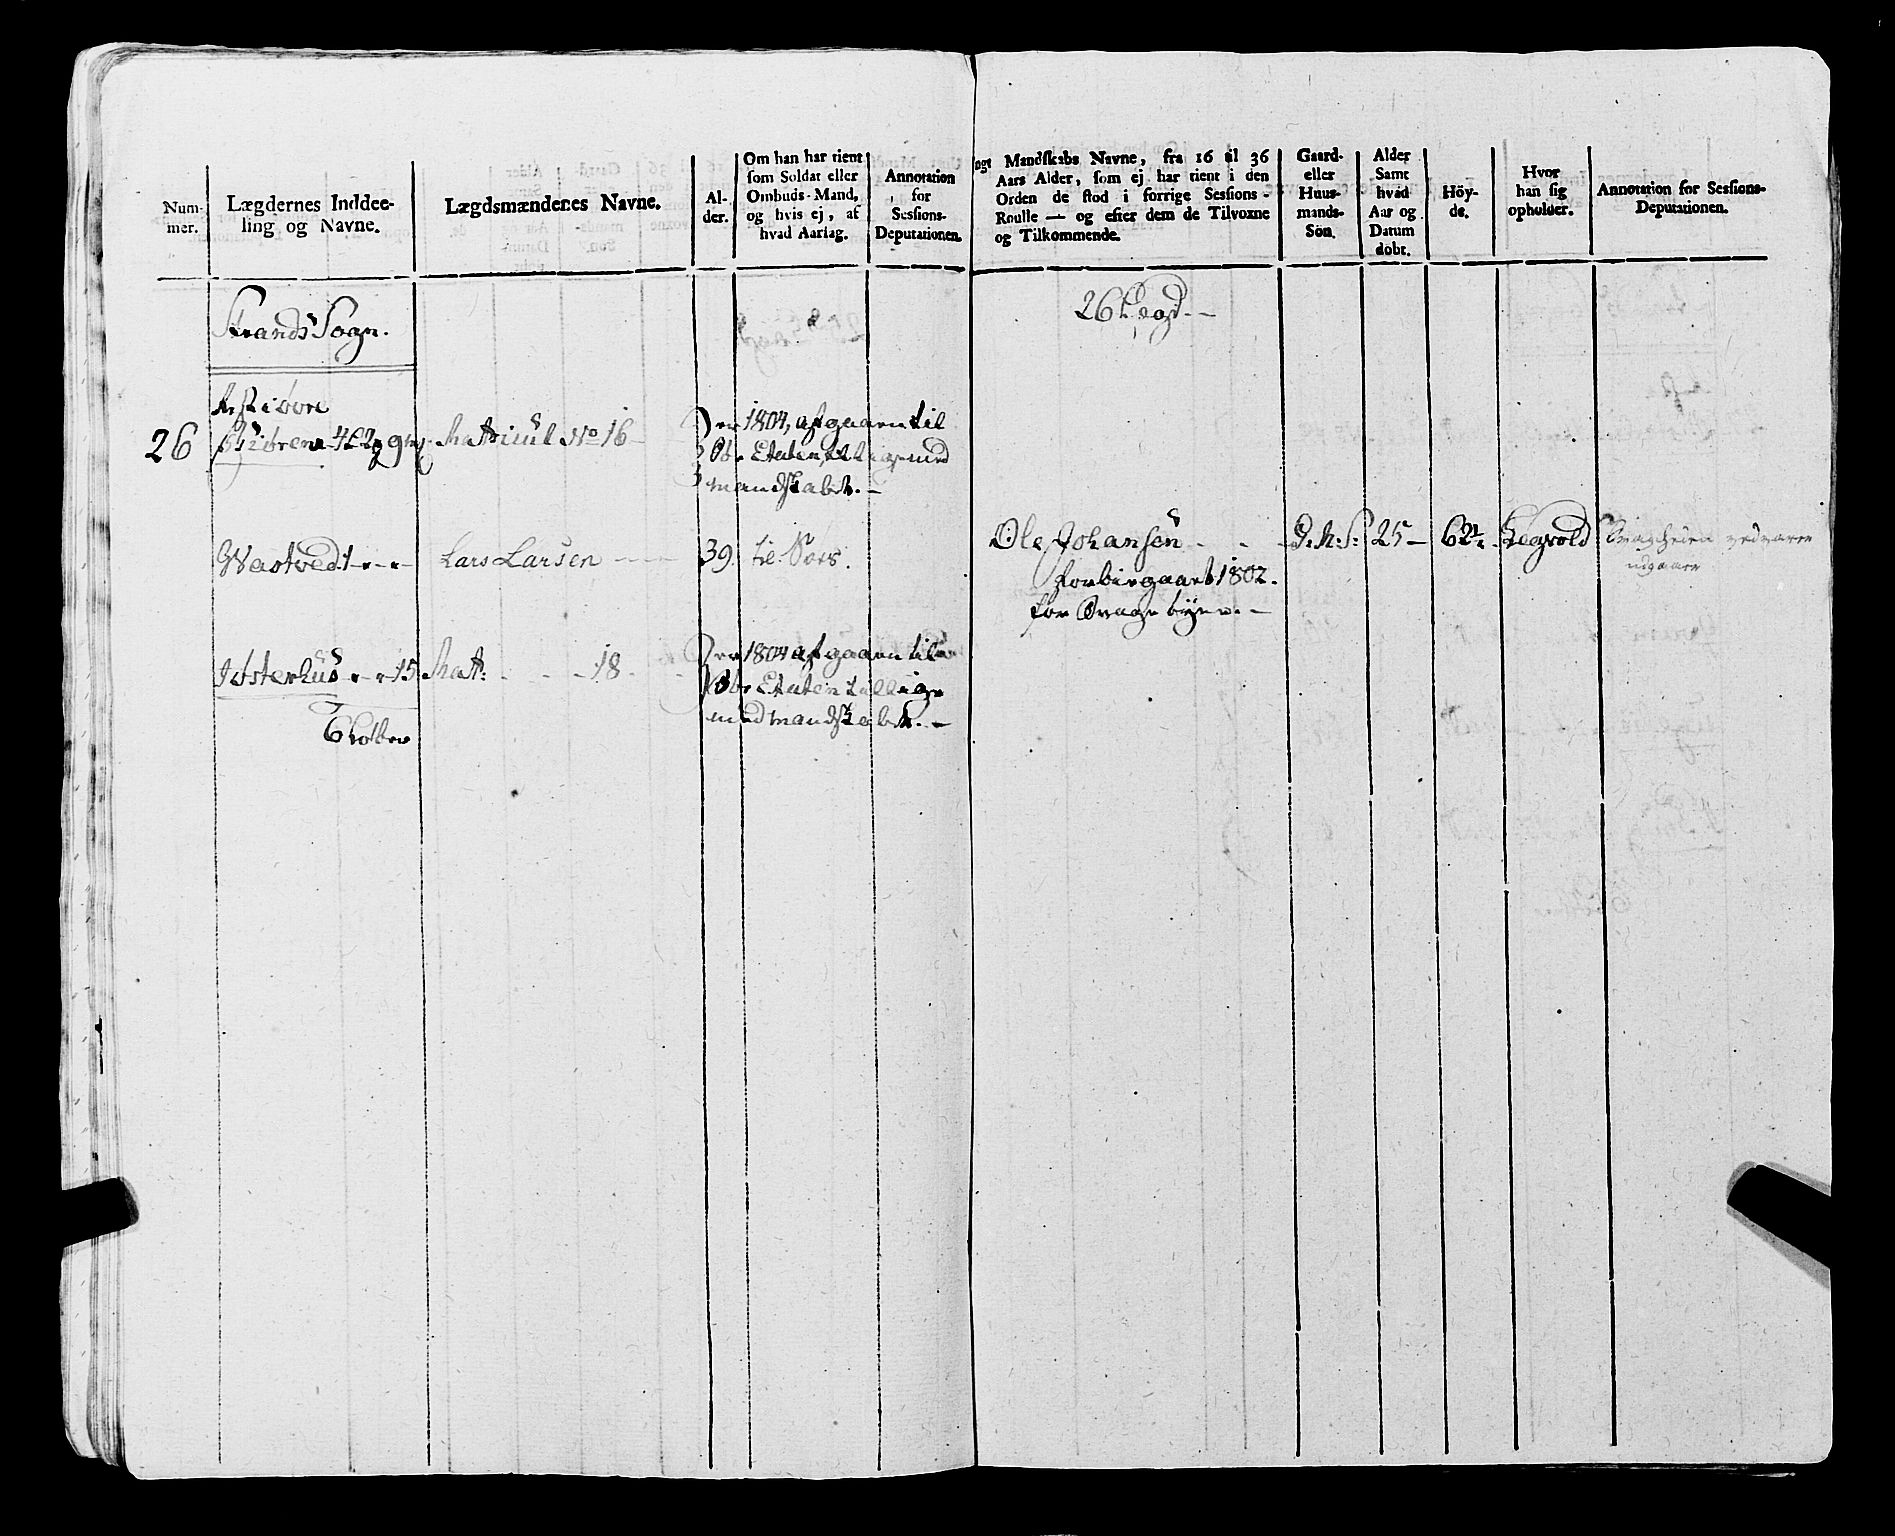 Num-
mer.
Lægdernes Inddee-
ling og Navne.
Lægdsmændenes Navne.
Al-
der.
Om han har tient
som Soldat eller
Ombuds-Mand,
og hvis ej, af
hvad Aarsag.
Annotation
for
Sessions-
Deputationen.
ngt Mandskabs Navne, fra 16 til 36
Aars Alder, som ej har tient i den
Orden de stod i forrige Sessions-
Roulle — og efter dem de Tilvoxne
og Tilkommende.
Gaard-
eller
Huus-
mands-
Sön.
Alder
Samt
hvad
Aar og
Datum
döbt.
Höy-
de.
Hvor
han sig
opholder.
Annotation for Sessions-
Deputationen.
Strands Sogn.
26 Legd.
26
Matricul No 16
er 1804, afgaaen til
Etaten
mandskabet.
Westvedt
Lars Larsen
39.
Ole Johansen
G. M. S.
25
62½
Legvold
Svagheden vedvarer
udgaaer
forbigaaet 1802.
for Svage
15
Mat: 18
er 1804 afgaaen til
Etaten tillige
med mandskabet.